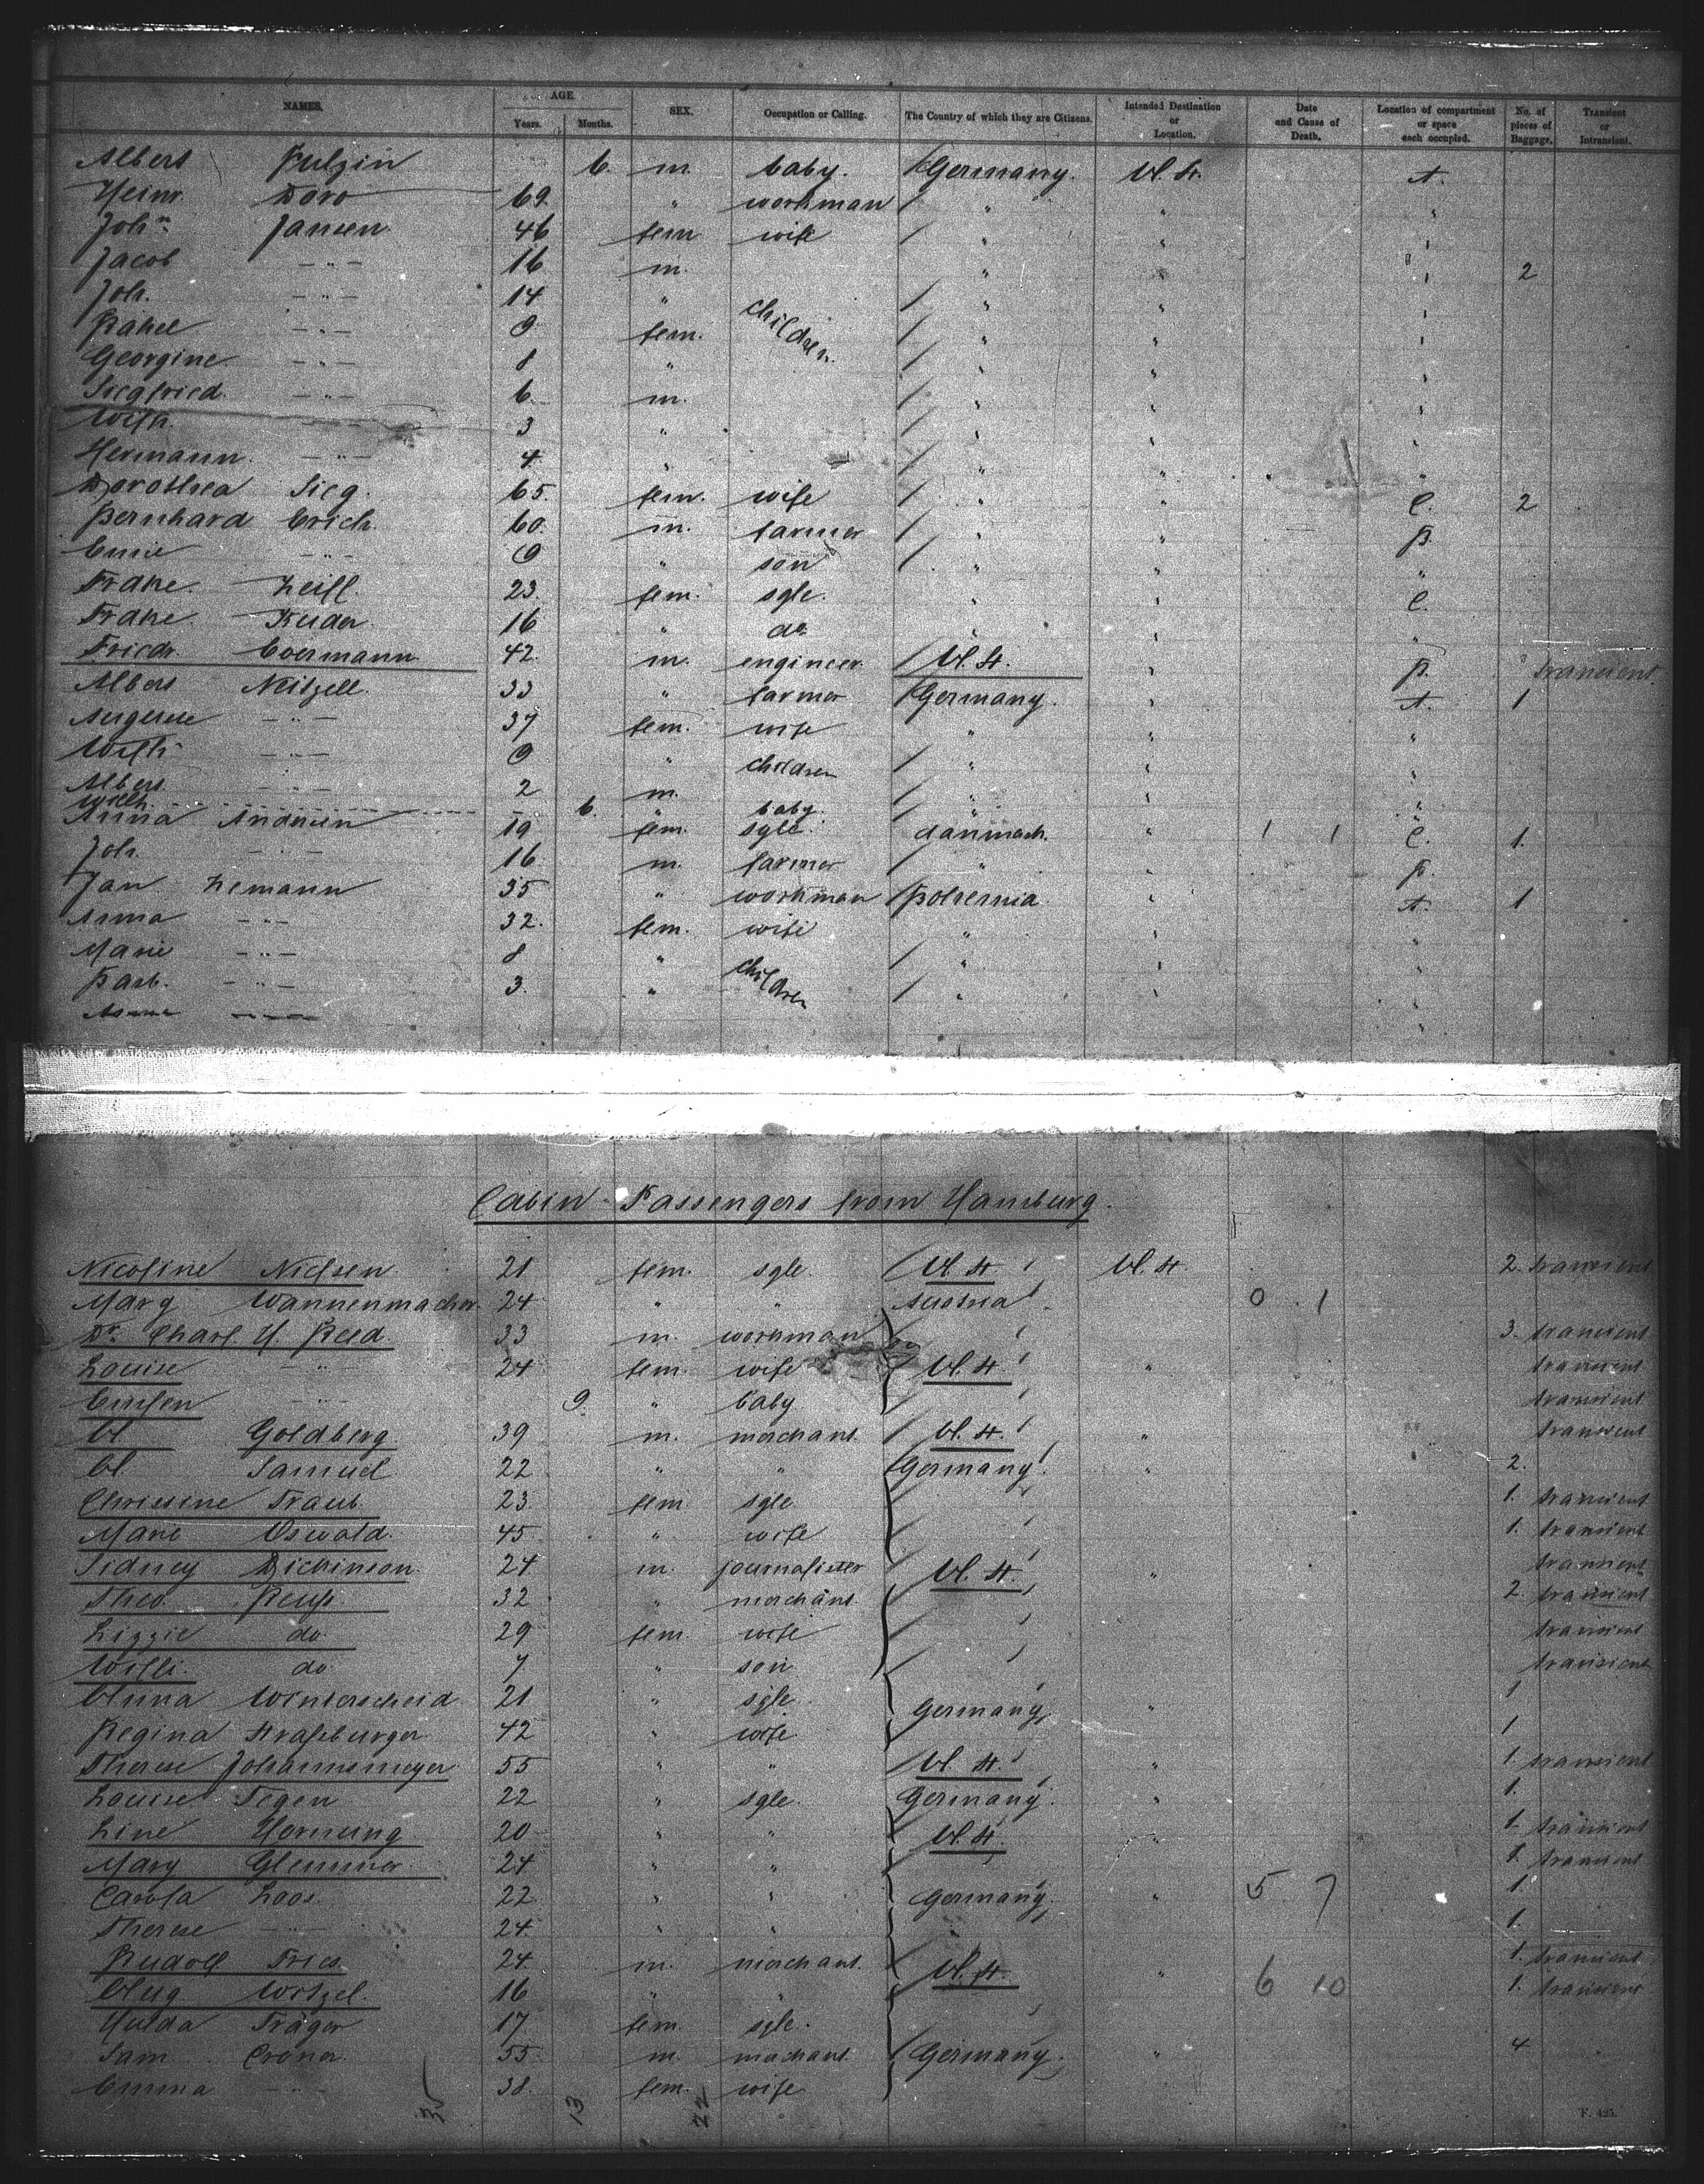 NAMES. AGE. Years. Months. SEX. Occupation or Calling. The Country of which they are Citizens. Intended Destination or Location. Date and Cause of Death. Location of compartment or space each occupied. No. of pieces of Baggage. Transient or Intransient.
Albert 6. m. baby. Germany. U. St. A.
Heinr. 69. " workman " " "
Joh. Jansen. 46 fem wife " " "
Jacob — " — 16 m. " " " 2
Joh. — " — 14 " children. " " "
Rahel — " — 9 fem. " " "
Georgine — " — 8 " " " "
Siegfried. — " — 6. m. " " "
Wilh. — " — 3 " " " "
Hermann. — " — 4 " " " "
Dorothea Sieg. 65. fem. wife " " C. 2
Bernhard Erich. 60. m. farmer " " B.
— " — 9 " son " " "
23. fem. sgle. " " C.
16 " do. " " "
Friedr. Coermann. 42. m. engineer. U. St. " B. transient.
Albert Neitzell. 33 " farmer Germany. " A. 1
Auguste — " — 37 fem. wife " " "
Willi — " — 9 " children " " "
Albert — " — 2 m. " " "
Wilh. 6. " baby.
Anna Andersen 19 fem. sgle. danmark. " 1 1 C. 1.
Joh. — " — 16 m. farmer " " B.
Jan Zemann 35 " workman Bohemia " A. 1
Anna — " — 32. fem. wife " " "
Marie — " — 8 " children " " "
Barb. — " — 3. " " " "
Cabin-Passengers from Hamburg.
Nicoline Nielsen 21 fem. sgle. U. St. U. St. 2. transient
Mary Wannenmacher. 24 " " Austria 0 1
Dr. Charl. H. Reed. 33 m. workman 3. transient
Louise — " — 24 fem. wife U. St. " transient
— " — 9. " baby transient
Goldberg. 39 m. merchant. U. St. " transient
Samuel 22 " " Germany. " 2.
Christine Traub. 23. fem. sgle. 1. transient
Marie Oswald. 45. " wife 1. transient
Sidney Dickinson. 24 m. U. St. " transient
Theo. Reuß. 32 " merchant 2. transient
Lizzie do. 29 fem. wife transient
Willi. do 7 " son transient
Winterscheid 21 " sgle. Germany. " 1
Regina Straßburger. 42 " wife 1
Therese Johannsmeyer. 55 " " U. St. " 1. transient
Louise Tegen 22 " sgle. Germany. " 1.
Line Hornung 20 " " U. St. " 1. transient
Mary Glemmer. 24 " " 1. transient
Carola Loos. 22 " " Germany. " 5 7 1.
Therese — " — 24. " " 1.
Rudolf Fries. 24 m. merchant. U. St. " 6 10 1. transient
Aug Witzel. 16 " " 1. transient
Hulda Träger 17 fem. sgle.
Sam Croner. 55 m. merchant. Germany. " 4
Emma — " — 38. fem. wife
13 22
F. 425.